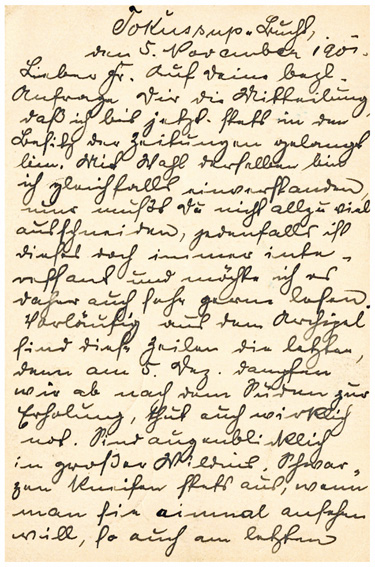 Tokussup-Bucht,
den 5. November 1901.
Lieber Fr. Auf Deine bezl.
Anfrage Dir die Mitteilung,
daß ich bis jetzt stets in den
Besitz der Zeitungen gelangt
bin. Mit Wahl derselben bin
ich gleichfalls einverstanden,
nur mußt Du nicht allzu viel
ausschneiden, jedenfalls ist
dieses doch immer inte-
ressant und möchte ich es
daher auch sehr gerne lesen.
Vorläufig aus dem Archipel
sind diese Zeilen die letzten,
denn am 5. Dez. dampfen
wir ab nach dem Süden zur
Erholung, thut auch wirklich
not. Sind augenblicklich
in großer Wildnis. Schwar-
zen kneifen stets aus, wenn
man sie einmal ansehen
will, so auch am letzten